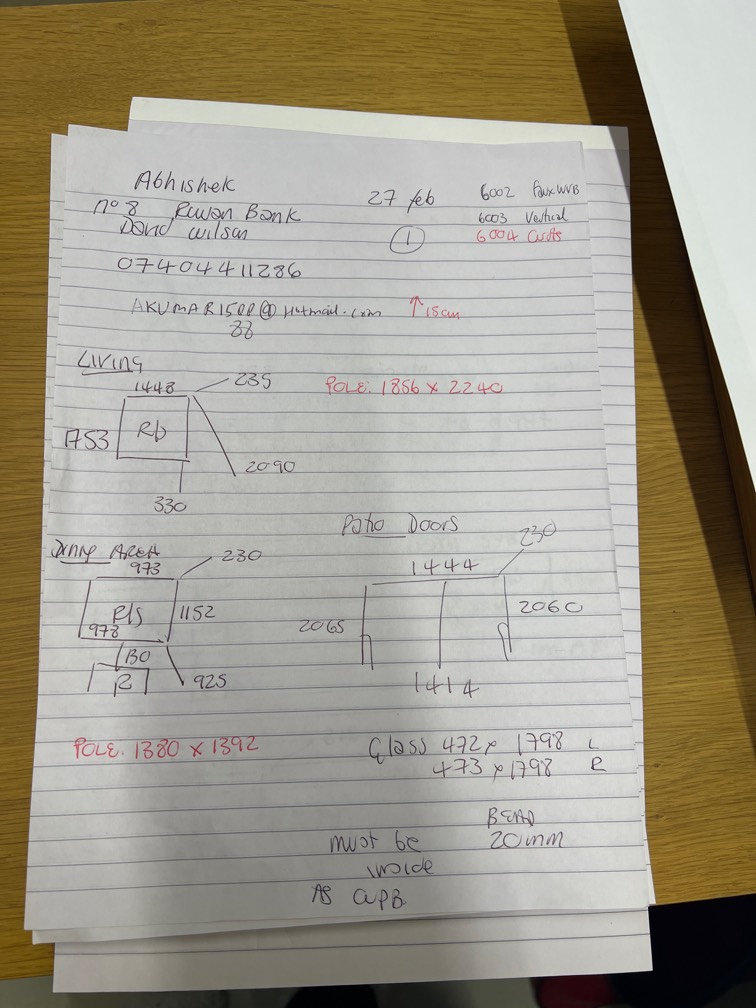 Abhishek
27 feb
6002 Faux WVB
no 8 Rowan Bank
6003 Vertical
David Wilson
1
6004 Curts
07404411286
AKUMAR1500@Hotmail.com
↑ 15cm
88
Living
1448
235
POLE: 1856 x 2240
1753
Rb
2090
330
Patio Doors
230
Dining AREA
973
230
1444
Rls
1152
2065
2060
978
BO
R
925
1414
POLE: 1380 x 1392
Glass 472 x 1798 L
473 x 1798 R
BEAD
must be
20mm
inside
AS CUPB